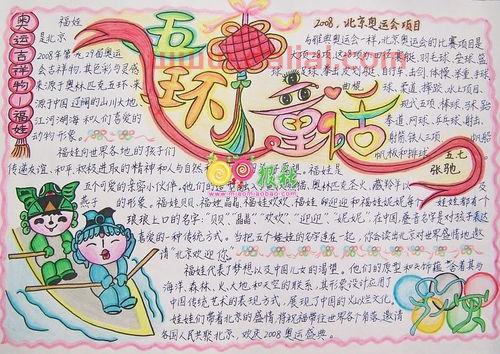 奥运吉祥物—福娃
五环童话
福娃
是北京
2008年第29届奥运
会吉祥物,其色彩与灵感
来源于奥林匹克五环,来
源于中国辽阔的山川大地、
江河湖海和人们喜爱的
动物形象。
福娃向世界各地的孩子们
传递友谊、和平、积极进取的精神和人与自然
愿望。福娃是
五个可爱的亲密小伙伴,他们的
奥林匹克圣火、藏羚羊以及
燕子的形象。福娃贝贝、福娃晶晶、福娃欢欢、福娃迎迎和福娃妮妮
娃娃都有个
琅琅上口的名字:"贝贝""晶晶""欢欢""迎迎""妮妮",在中国,叠音名字是对孩子表达
喜爱的一种传统方式。当把五个娃娃的名字连在一起,你会读出北京对世界的盛情邀
请"北京欢迎您"。
福娃代表了梦想以及中国人民的渴望。他们的原型和头饰蕴含着其与
海洋、森林、火、大地和天空的联系,其形象设计应用了
中国传统艺术的表现方式,展现了中国的灿烂文化。
娃娃们带着北京的盛情,将祝福带往世界各个角落,邀请
各国人民共聚北京,欢庆2008奥运盛典。
2008,北京奥运会项目
与雅典奥运会一样,北京奥运会的比赛项目是
羽毛球、垒球、篮
足球、拳击、皮划艇、自行车、击剑、体操、举重、手球、
曲棍
球、柔道、摔跤、水上项目、
现代五项、棒球、马术、跆
拳道、网球、乒乓球、射击、
射箭、铁人三项、
帆船
帆板和排球
五七
张驰
www.miaomiaobao.com